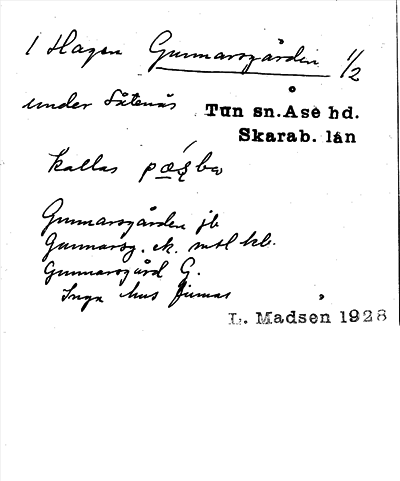 1 Hagen Gunnarsgården 1/2
under Såtenäs Tun sn. Åse hd.
Skarab. län
kallas
Gunnarsgården jb
Gunnarsg. ek. mtl kb.
Gunnarsgård G.
Inga hus finnas
L. Madsen 1928